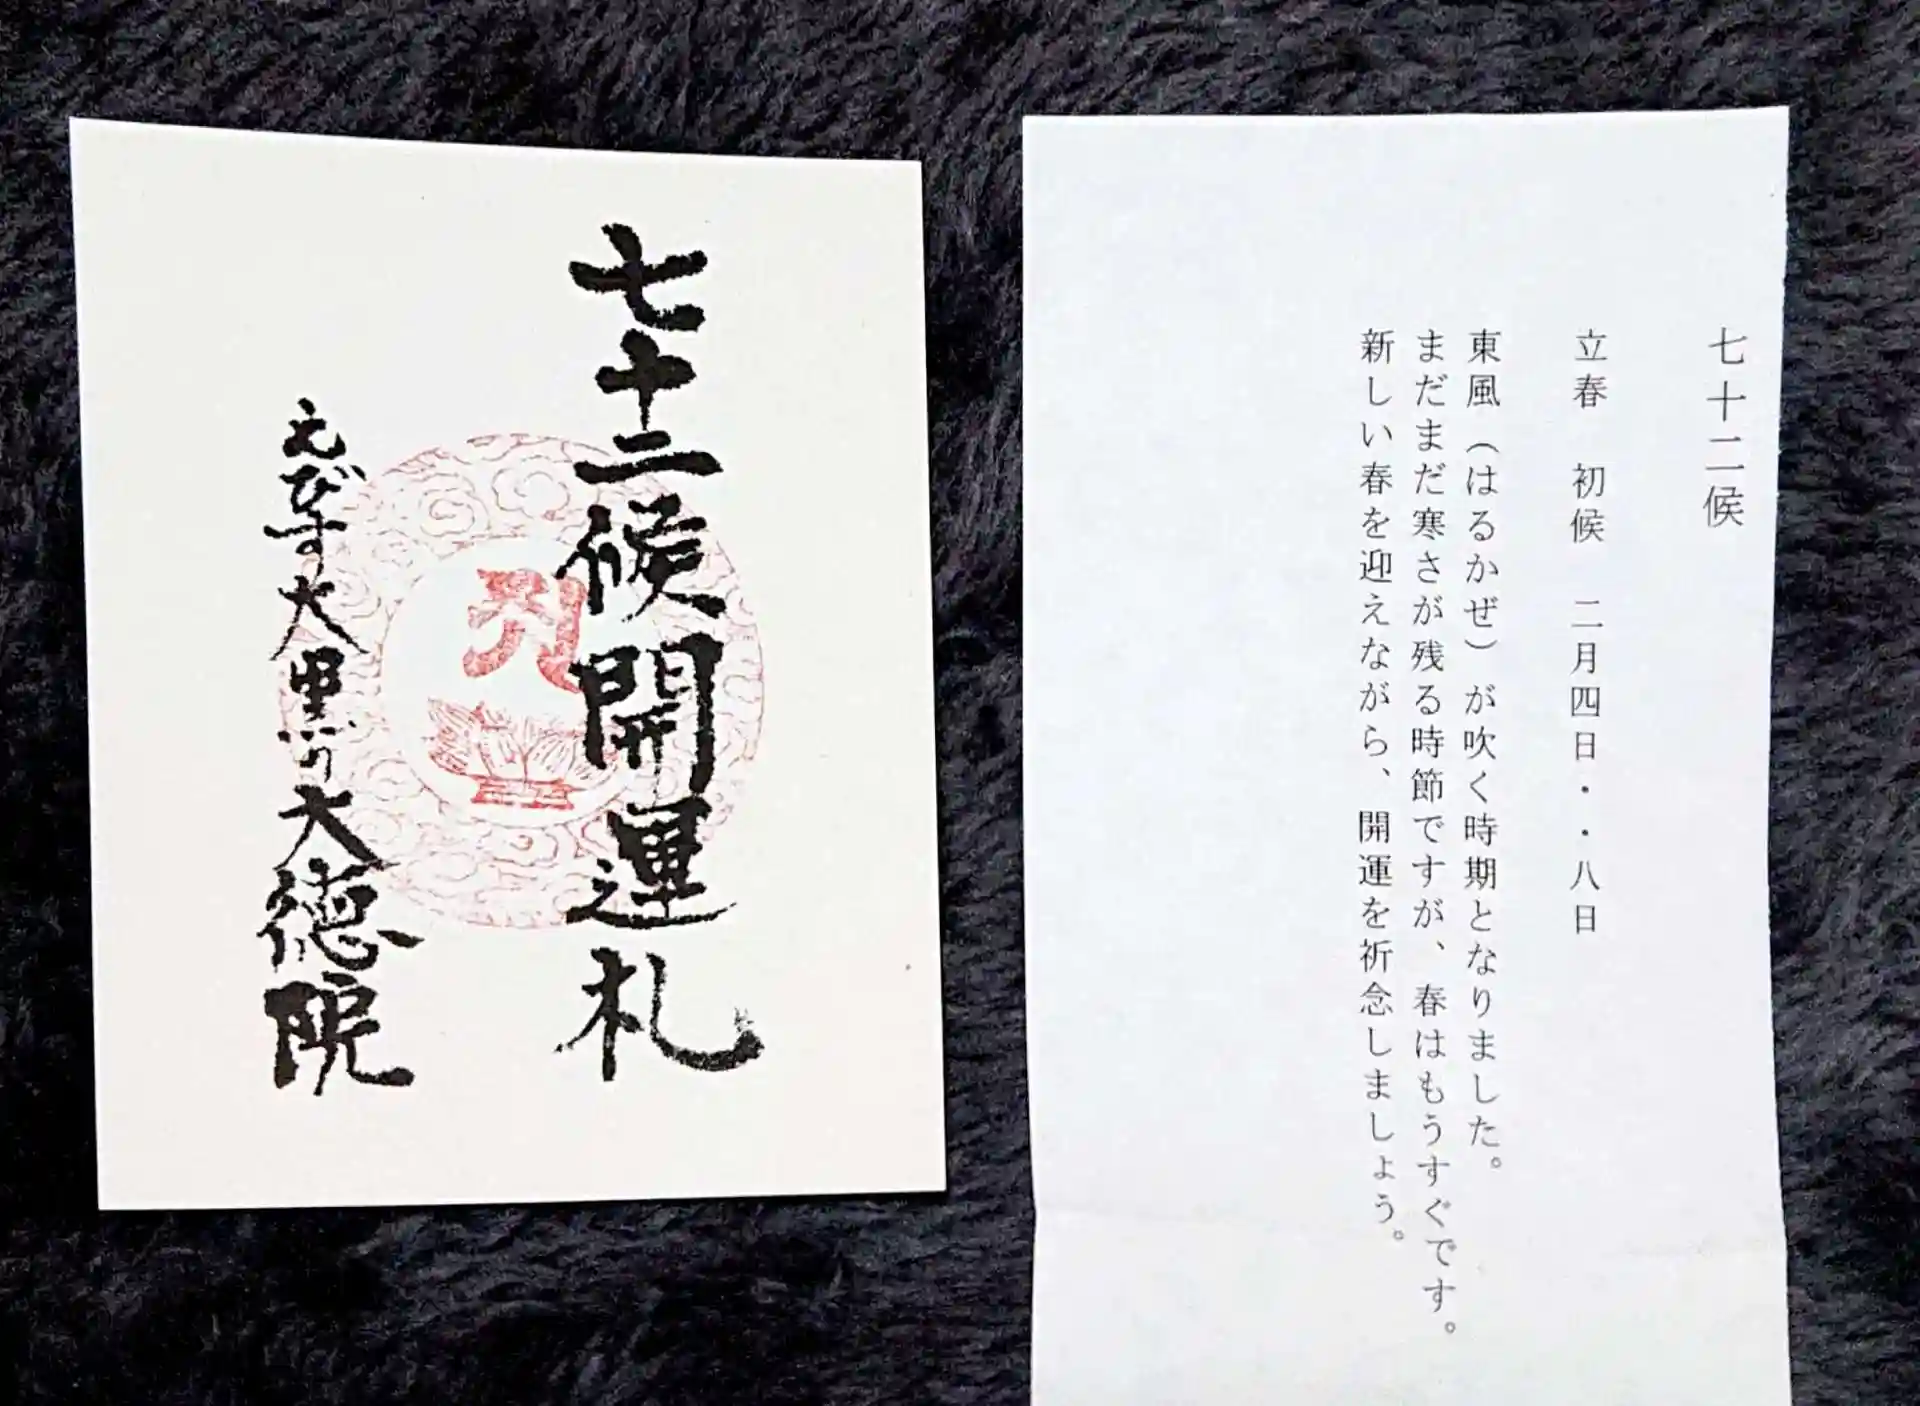 七十二候開運札
えびす大黒の大徳院
七十二候
立春　初候　二月四日・・八日
東風（はるかぜ）が吹く時期となりました。
まだまだ寒さが残る時節ですが、春はもうすぐです。
新しい春を迎えながら、開運を祈念しましょう。